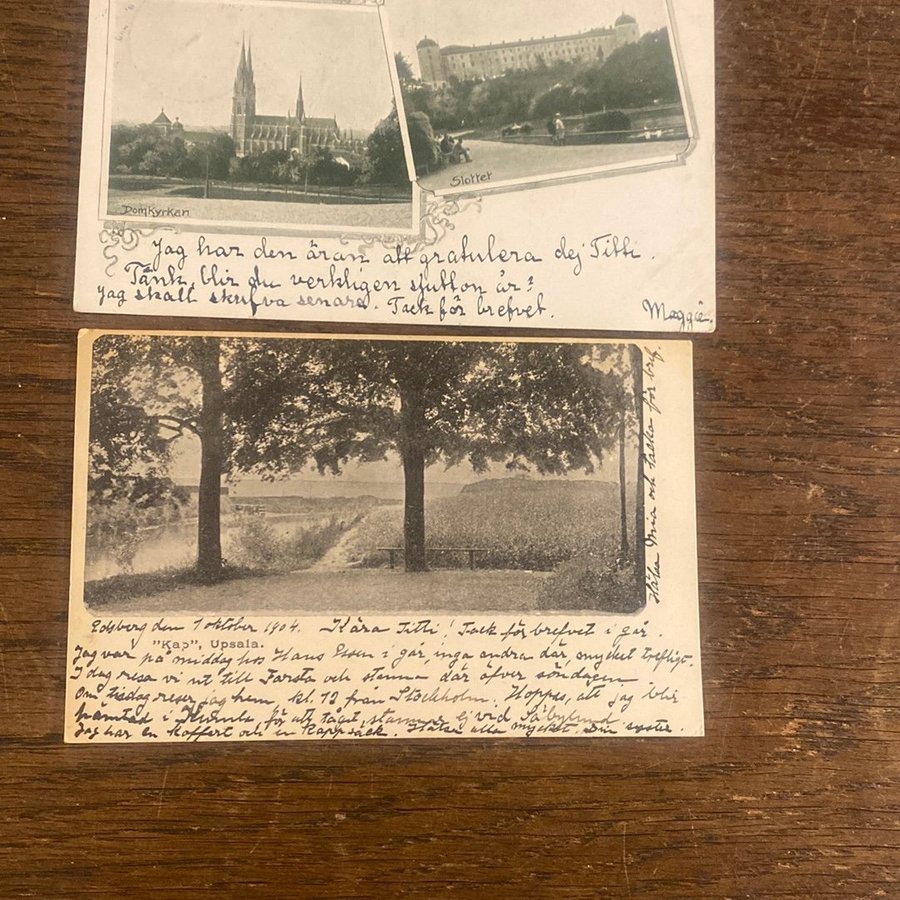 Domkyrkan
Slottet
Jag har den äran att gratulera dej Titti.
Tänk, blir du verkligen sjutton år?
Jag skall skrifva senare. Tack för brefvet.
Maggie.
Hälsa Mia och tacka för bref.
Edsberg den 1 oktober 1904. Kära Titti! Tack för brefvet i går.
"Kap", Upsala.
Jag var på middag hos Hans Essen i går, inga andra där, mycket trefligt.
I dag resa vi ut till Farsta och stanna där öfver söndagen
Om tisdag reser jag hem, kl. 12 från Stockholm. Hoppas, att jag blir
hämtad i Knifsta, för att tåget stannar ej vid
Jag har en koffert och en kappsäck. Hälsa alla mycket. Din syster.